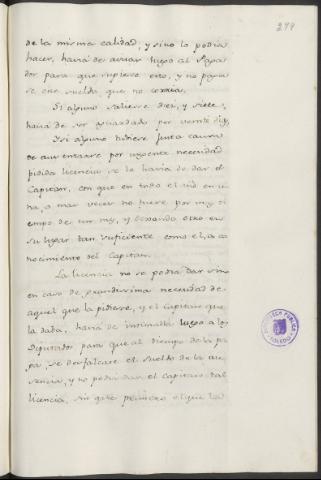 279
de la misma calidad, y sino lo podia
hacer, havia de avisar luego al Paga
dor para que supiese esto, y no paga
se ese sueldo que no corria.
Si alguno saliese diez, y siete,
havia de ser aguardado por veinte dias,
Y si alguno tubiere justa causa
de ausentarse por urgente necesidad
pidida licencia se la havia de dar el
Capitan, con que en todo el año en vi
na, o mas veces no fuese por mas ti
empo de un mes, y dexando otro en
su lugar tan suficiente como el, a co
nocimiento del Capitan.
La licencia no se podia dar sino
en caso de grandissima necesidad de
aquel que la pidiese, y el Capitan que
la daba, havia de luego a los
Diputados para que al tiempo de la pa
ga, se desfalcase el sueldo de la au
sencia, y no podia dar el Capitan tal
licencia, sin que primero el que la
BIBLIOTECA PUBLICA
TOLEDO